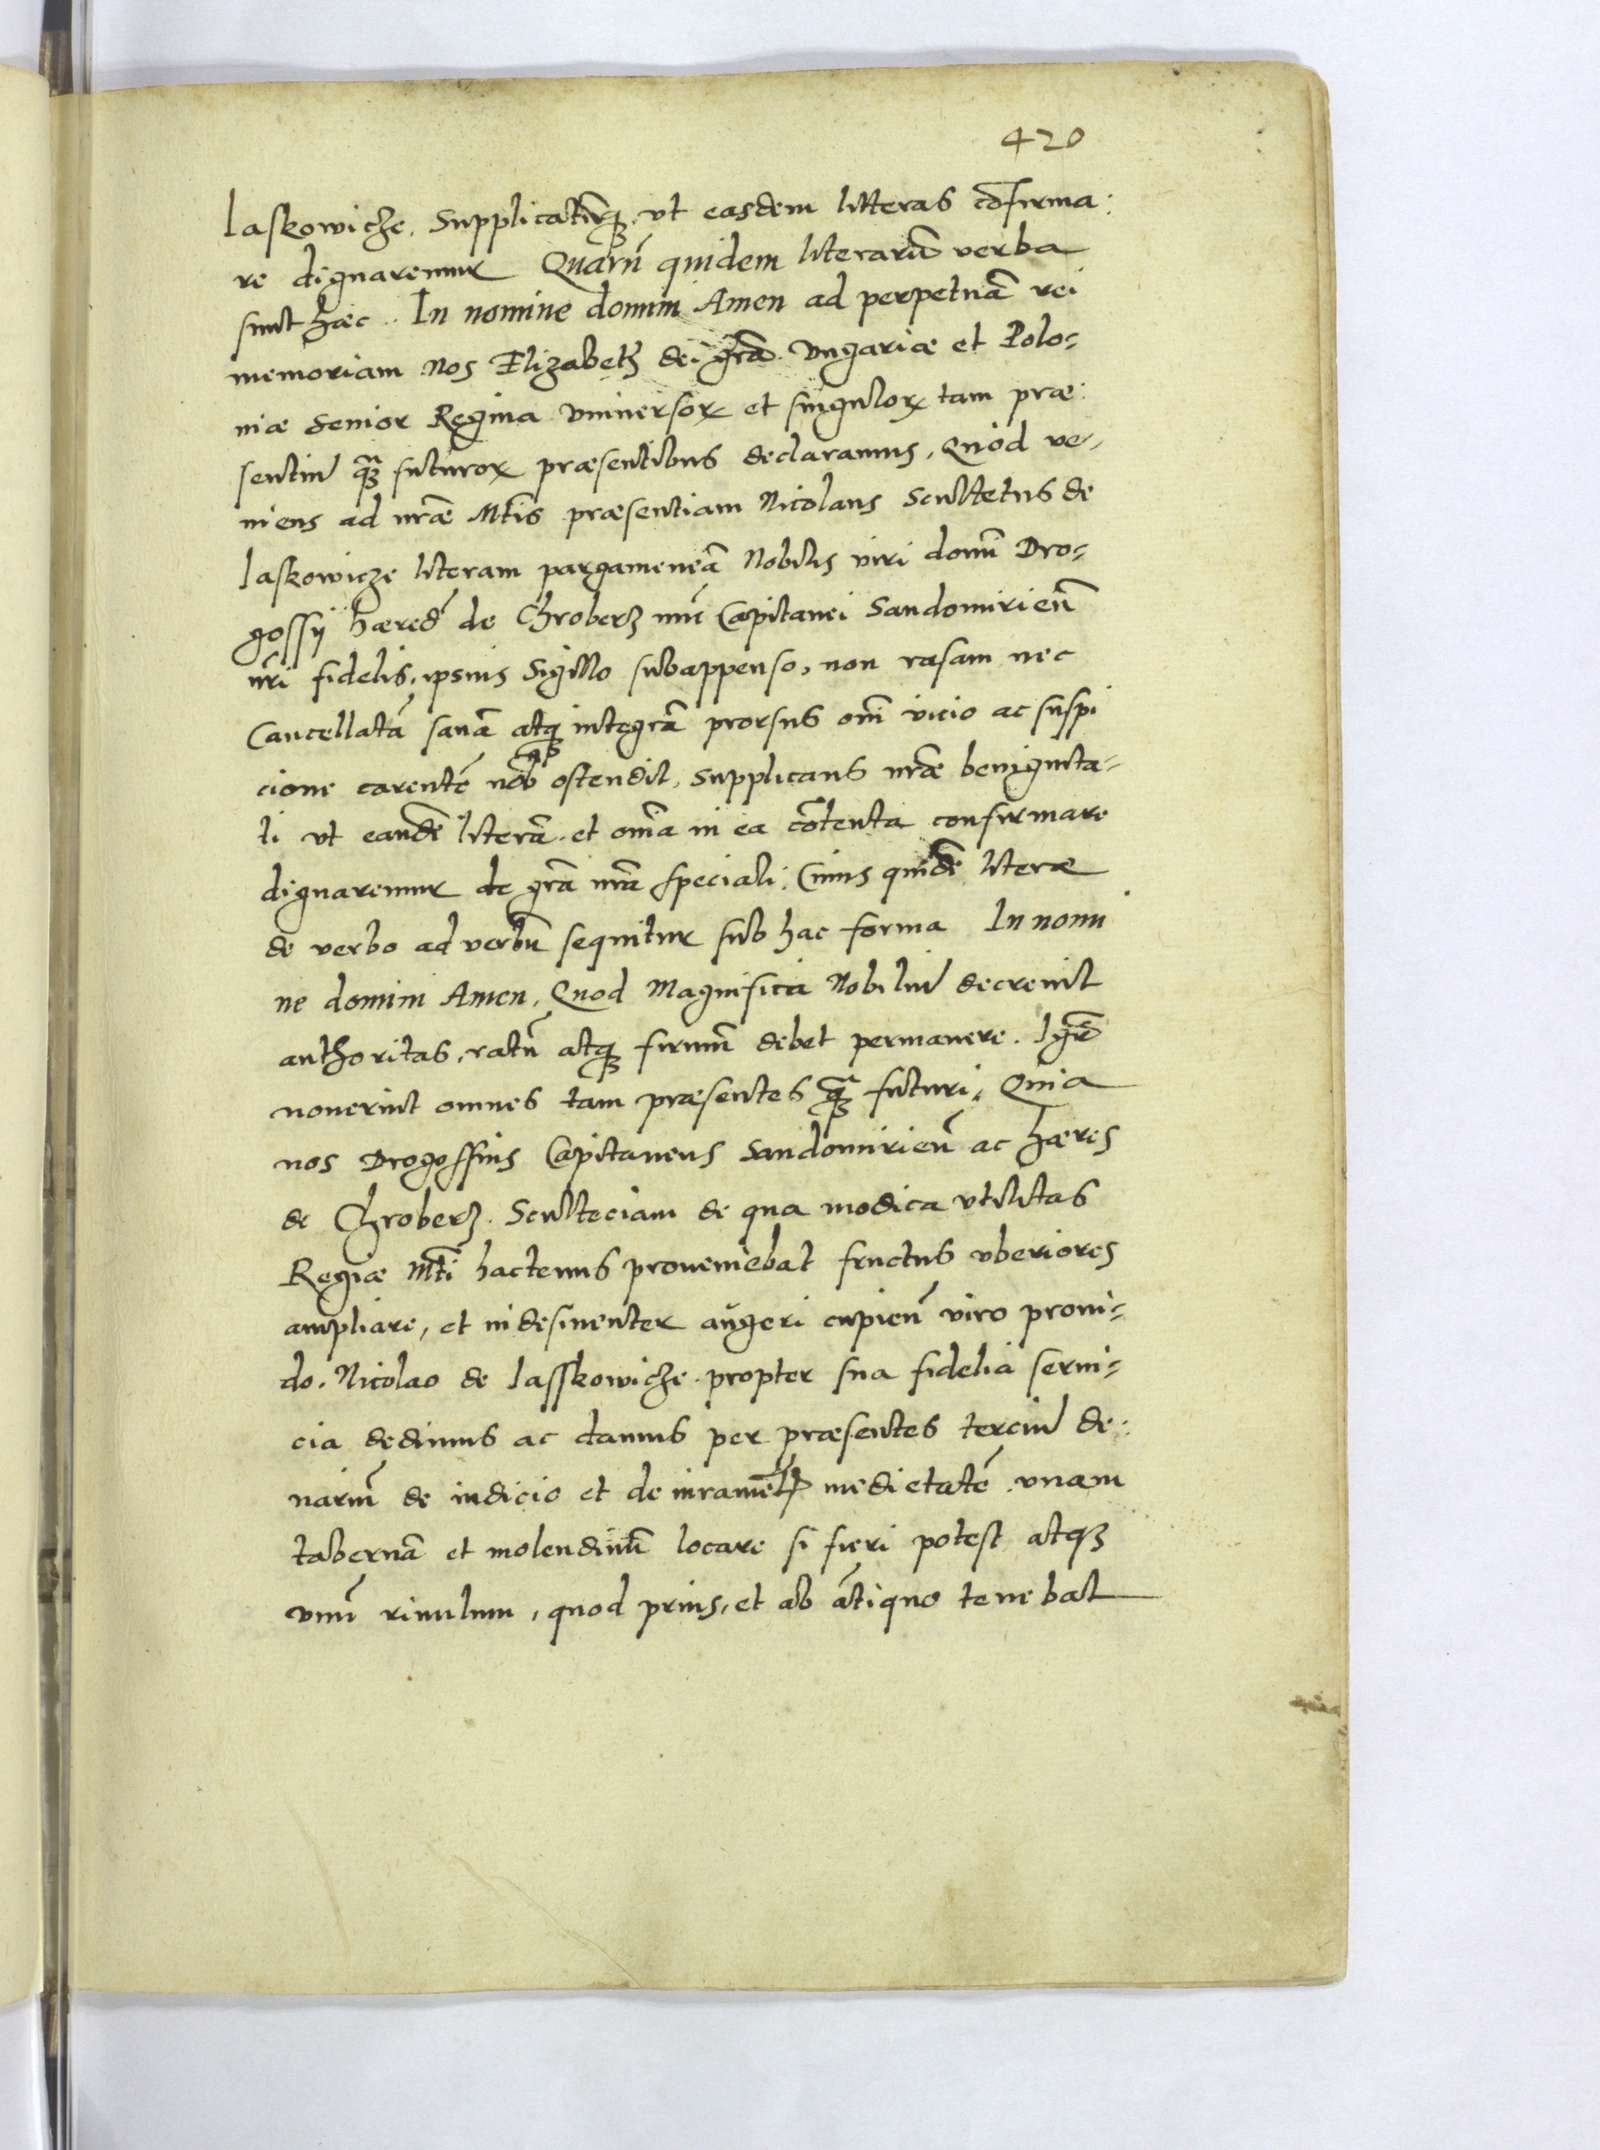 420
Laskowicze. Supplicatūq3 vt easdem litteras cōfirma:
re dignaremur Quarū quidem literarū verba
sunt hæc. In nomine domini Amen ad perpetuā rei
memoriam Nos Elizabeth dei grā Vngariæ et Polo-
niæ Senior Regina Vniuersoꝝ et singuloꝝ tam præ:
sentiū q̄3 futuroꝝ præsentibus declaramus, Quod ve-
niens ad nrāe Mtis præsentiam Nicolaus Scultetus de
Laskowicze literam pargameneā Nobilis viri domī Dro-
gossÿ hæred̄ de Chroberz nūc Capitanei Sandomirieñ
nrī fidelis, ipsius Sigillo subappenso, non rasam nec
Cancellatā sanā atq3 integrā prorsus omī vicio ac suspi
cione carentē nob ostendit, supplicans nrāe benignita-
ti vt eandē literā et omīa in ea cōtenta confirmare
dignaremur de grā nrā speciali. Cuius quidē literæ
de verbo ad verbū sequitur sub hac forma In nomi
ne domini Amen, Quod Magnifica Nobiliū decreuit
authoritas, ratū atq3 firmū debet permanere. Igr̄
nouerint omnes tam præsentes q̄3 futuri, Quia
nos Drogossius Capitaneus Sandomirieñ ac hæres
de Chroberz Sculteciam de qua modica vtilitas
Regiæ Mti hactenus proueniebat fructus vberiores
ampliare, et indesinenter augeri cupieñ viro proui-
do. Nicolao de Lasskowicze propter sua fidelia serui-
cia dedimus ac damus per præsentes terciū de:
nariū de iudicio et de iuramētꝭ medietatē vnam
tabernā et molendinū locare si fieri potest atq3
vnū riuulum, quod prius, et ab ātiquo tenebat